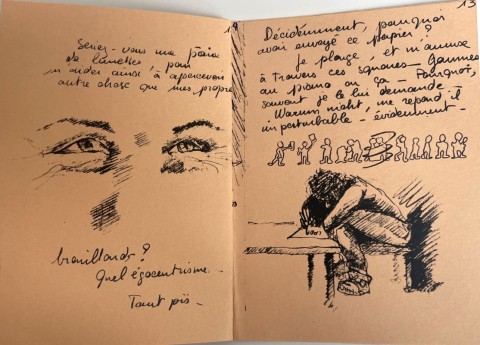 Seriez-vous ma paire
de lunettes, pour
m'aider ainsi à apercevoir
autre chose que mes propres
brouillards?
Quel égocentrisme.
Tant pis -
13
Décidemment, pourquoi
avoir envoyé ce papier?
Je plonge, et m'amuse
à travers ces squares - Gammes
au piano ou ça - Pourquoi,
souvent je le lui demande -
- Warum nicht, me répond il
imperturbable - évidemment -